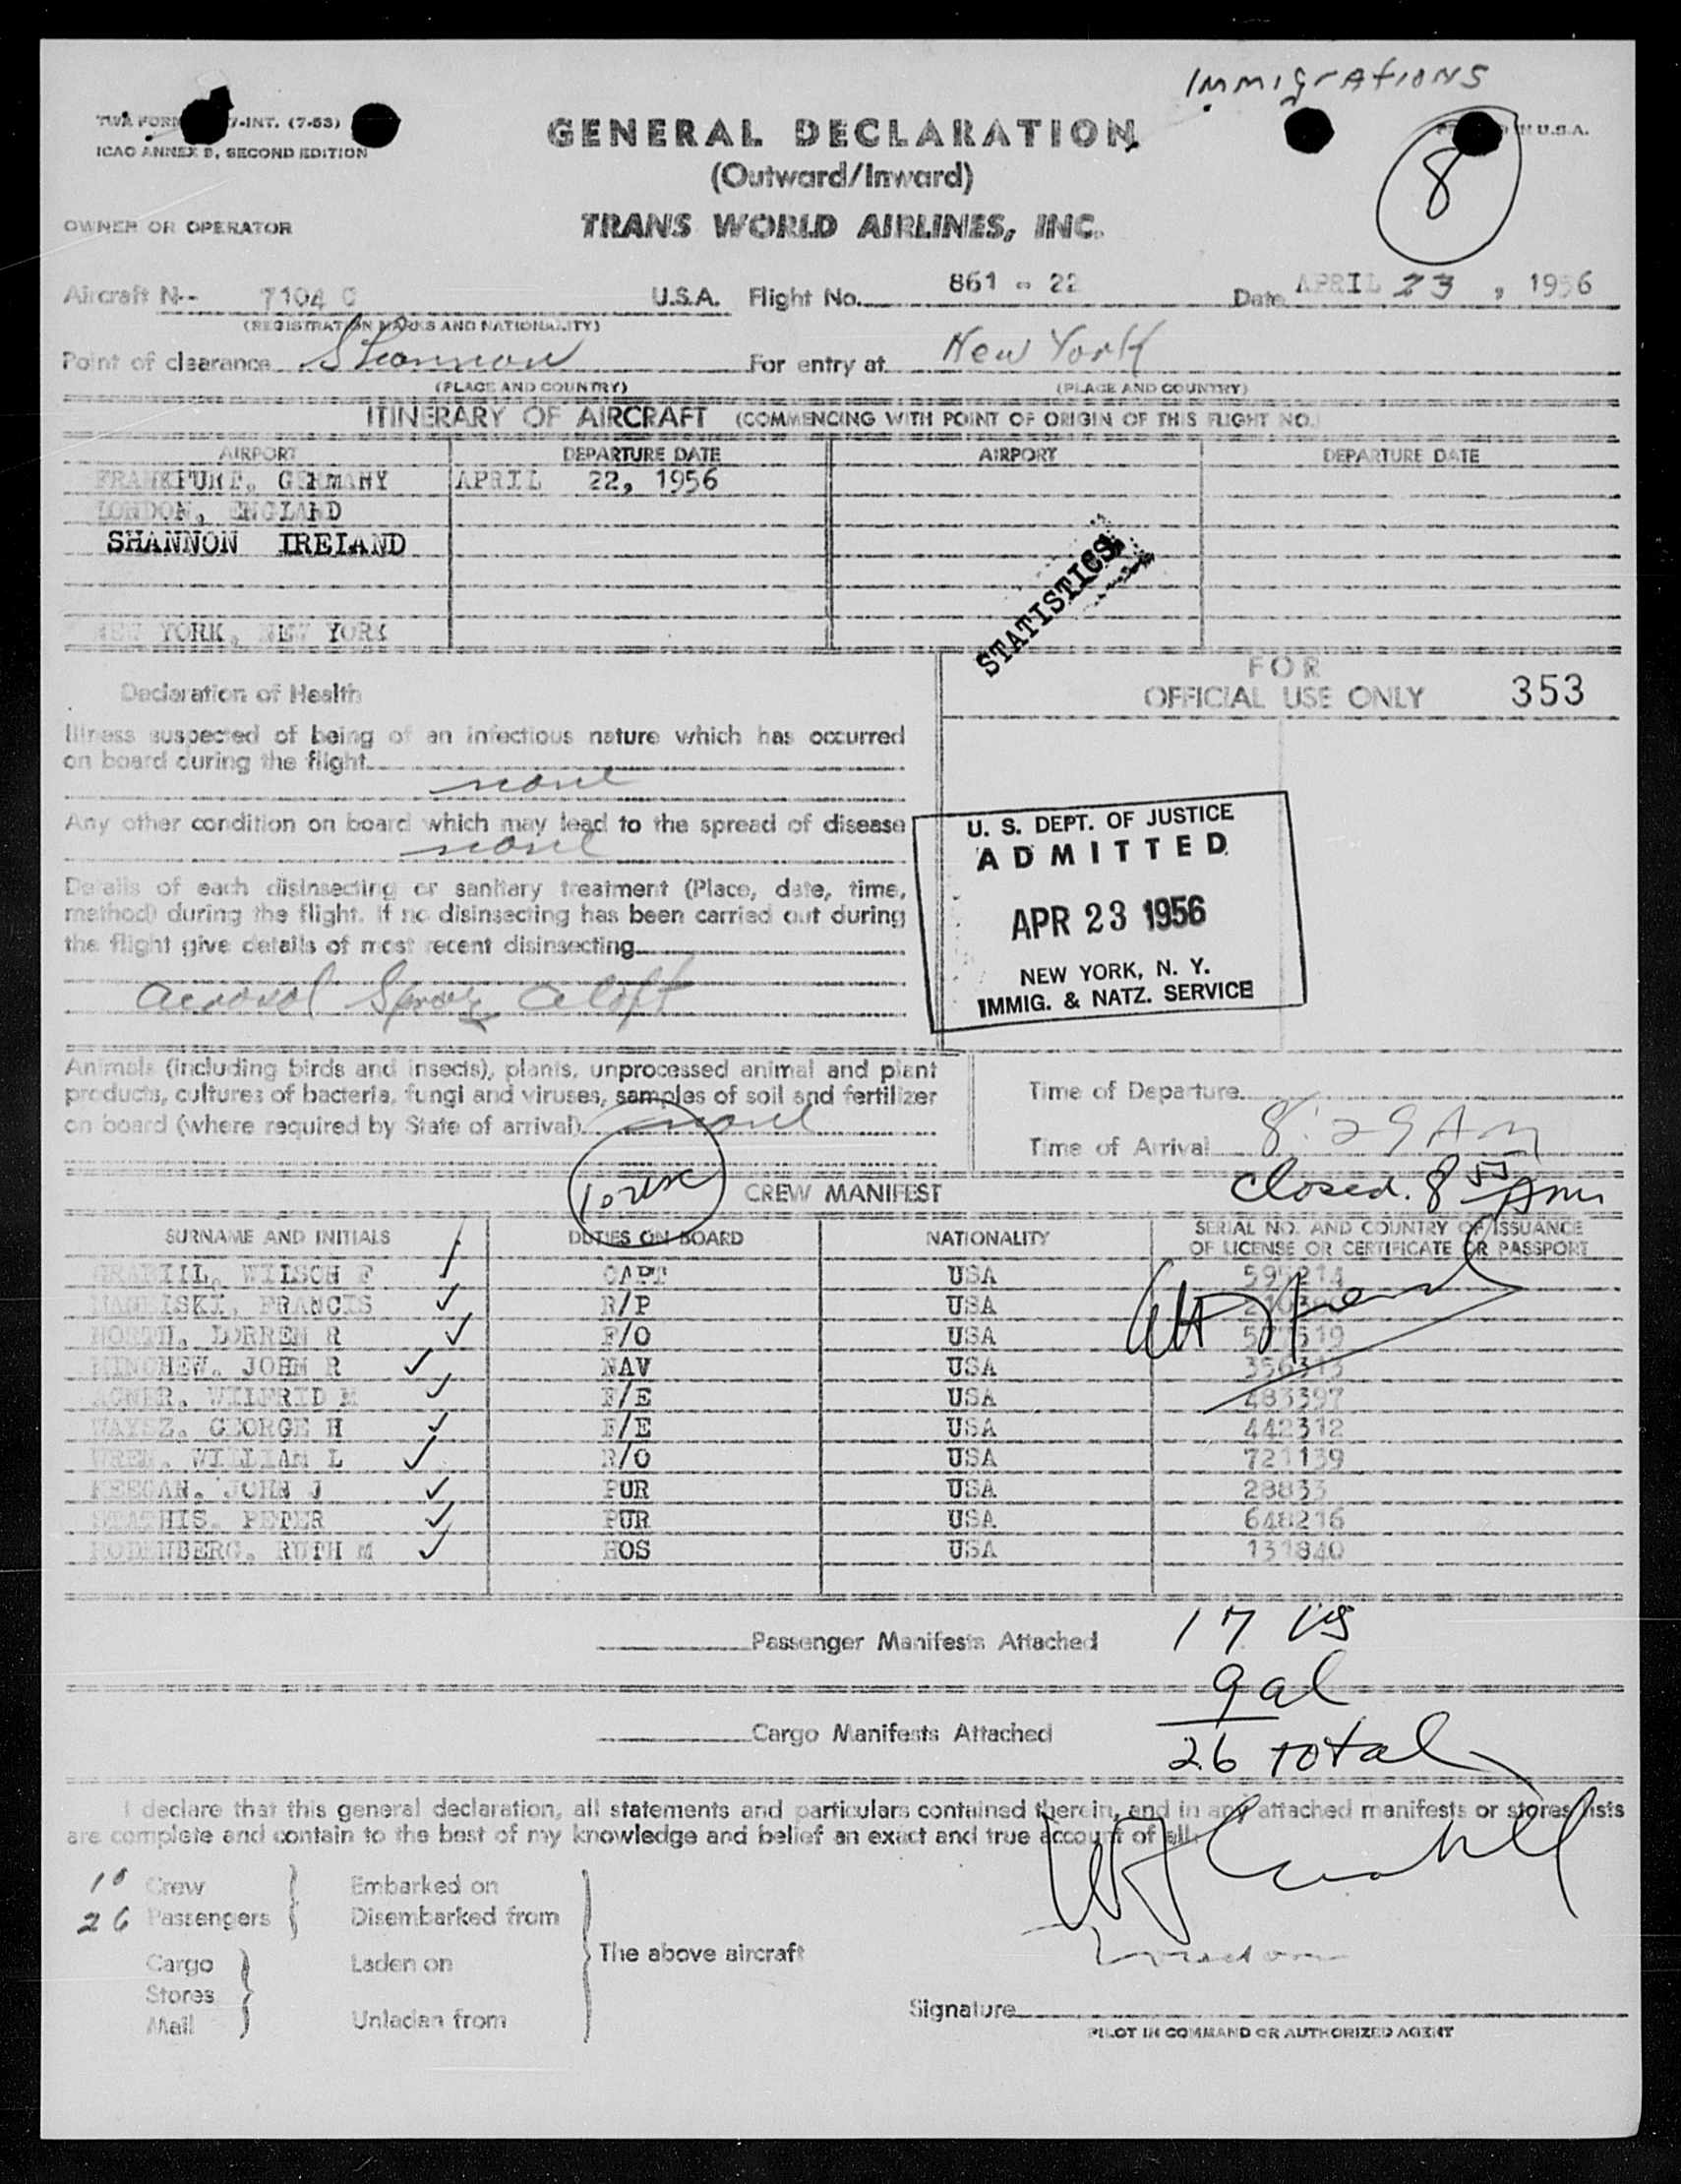 Immigrations
TWA FORM -INT. (7-53)
ICAO ANNEX 9, SECOND EDITION
GENERAL DECLARATION
IN U.S.A.
(Outward/Inward)
8
OWNER OR OPERATOR
TRANS WORLD AIRLINES, INC.
Aircraft N-- 7104 C U.S.A. Flight No. 861 - 22 Date APRIL 23, 1956
(REGISTRATION MARKS AND NATIONALITY)
Point of clearance Shannon For entry at New York
(PLACE AND COUNTRY) (PLACE AND COUNTRY)
ITINERARY OF AIRCRAFT (COMMENCING WITH POINT OF ORIGIN OF THIS FLIGHT NO.)
AIRPORT DEPARTURE DATE AIRPORT DEPARTURE DATE
FRANKFURT, GERMANY APRIL 22, 1956
LONDON, ENGLAND
SHANNON IRELAND
STATISTICS
NEW YORK, NEW YORK
FOR
OFFICIAL USE ONLY 353
Declaration of Health
Illness suspected of being of an infectious nature which has occurred
on board during the flight
none
Any other condition on board which may lead to the spread of disease
none
Details of each disinsecting or sanitary treatment (Place, date, time,
method) during the flight. If no disinsecting has been carried out during
the flight give details of most recent disinsecting
aerosol Spray aloft
U. S. DEPT. OF JUSTICE
ADMITTED
APR 23 1956
NEW YORK, N. Y.
IMMIG. & NATZ. SERVICE
Animals (including birds and insects), plants, unprocessed animal and plant
products, cultures of bacteria, fungi and viruses, samples of soil and fertilizer
on board (where required by State of arrival) none
Time of Departure
Time of Arrival 8:29 AM
closed. 8 55 Am
CREW MANIFEST
SURNAME AND INITIALS DUTIES ON BOARD NATIONALITY SERIAL NO. AND COUNTRY OF ISSUANCE
OF LICENSE OR CERTIFICATE OR PASSPORT
WILSON F CAPT USA 595214
FRANCIS R/P USA
NORTH, LORREN R F/O USA
MINCHEW, JOHN R NAV USA 356313
AGNER, WILFRID M F/E USA 483397
GEORGE H F/E USA 442312
WREN, WILLIAM L R/O USA 721139
KEEGAN, JOHN J PUR USA 28833
STATHIS, PETER PUR USA 648216
RODENBERG, RUTH M HOS USA 131840
Passenger Manifests Attached 17 US
9 al
Cargo Manifests Attached
26 total
I declare that this general declaration, all statements and particulars contained therein, and in any attached manifests or stores lists
are complete and contain to the best of my knowledge and belief an exact and true account of all:
10 Crew Embarked on
26 Passengers Disembarked from
The above aircraft
Cargo Laden on
Stores
Mail Unladen from
Signature
PILOT IN COMMAND OR AUTHORIZED AGENT